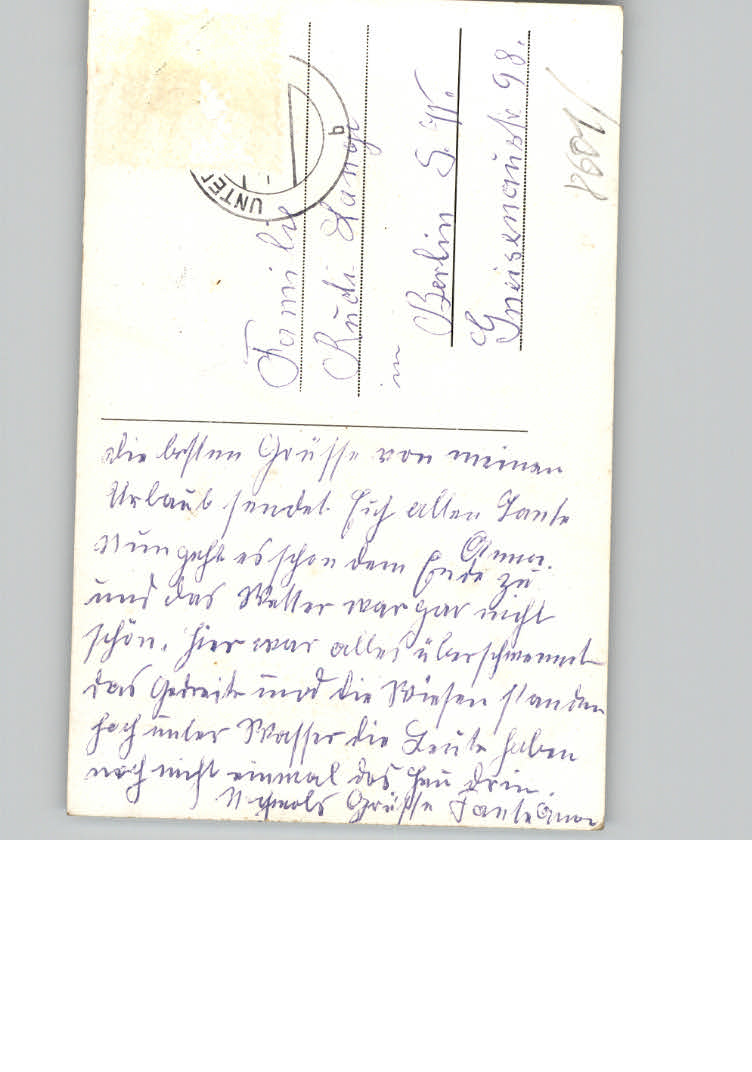 Die besten Grüsse von meinen
Urlaub sendet Euch allen Tante
Anna.
Nun geht es schon dem Ende zu
und das Wetter war gar nicht
schön. Hier war alles überschwemmt
das Gedreide und die Wiesen standen
hoch unter Wasser die Leute haben
noch nicht einmal das Heu drin.
Nochmals Grüsse Tante Anna
Familie
Rudi Lange
in Berlin S.W.
Gneisenaustr 98.
UNTER
b